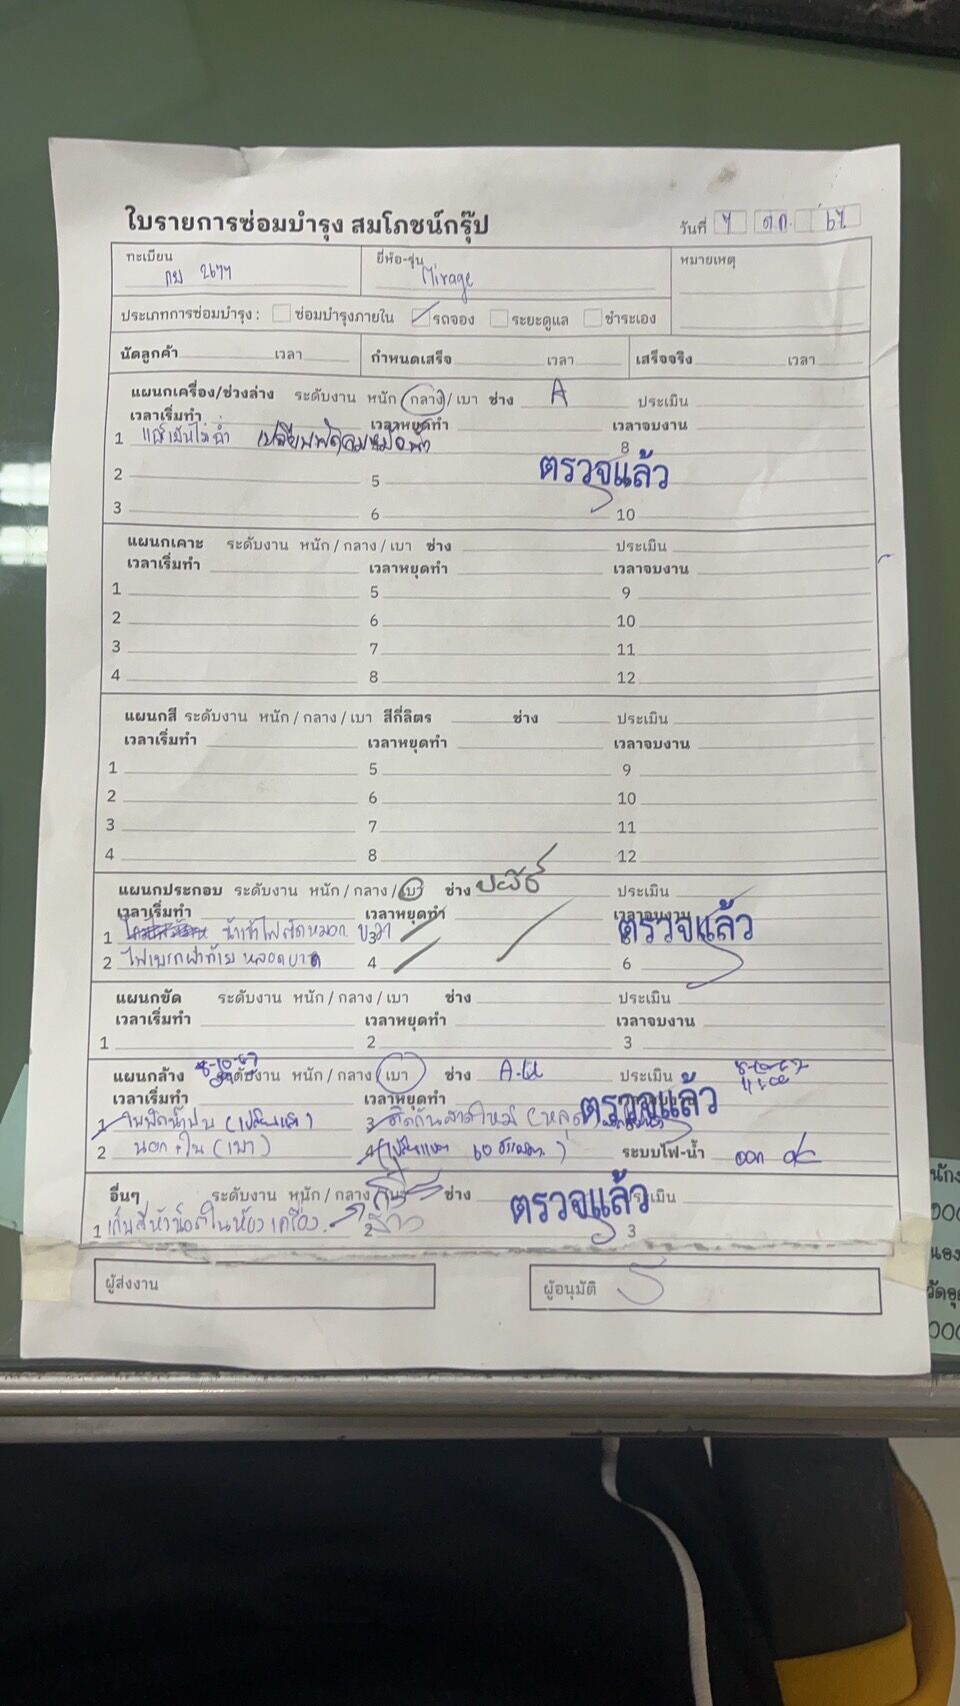 ใบรายการซ่อมบำรุง สมโภชน์กรุ๊ป
วันที่ 7 ต.ค. 67
ทะเบียน ยี่ห้อ-รุ่น หมายเหตุ
2677 Mirage
ประเภทการซ่อมบำรุง : ซ่อมบำรุงภายใน รถจอง ระยะดูแล ชำระเอง
นัดลูกค้า เวลา กำหนดเสร็จ เวลา เสร็จจริง เวลา
แผนกเครื่อง/ช่วงล่าง ระดับงาน หนัก / กลาง / เบา ช่าง A ประเมิน
เวลาเริ่มทำ เวลาหยุดทำ เวลาจบงาน
1 แอร์เย็นไม่ฉ่ำ เปลี่ยนพัดลมหม้อน้ำ 8
2 5 ตรวจแล้ว
3 6 10
แผนกเคาะ ระดับงาน หนัก / กลาง / เบา ช่าง ประเมิน
เวลาเริ่มทำ เวลาหยุดทำ เวลาจบงาน
1 5 9
2 6 10
3 7 11
4 8 12
แผนกสี ระดับงาน หนัก / กลาง / เบา สีกี่ลิตร ช่าง ประเมิน
เวลาเริ่มทำ เวลาหยุดทำ เวลาจบงาน
1 5 9
2 6 10
3 7 11
4 8 12
แผนกประกอบ ระดับงาน หนัก / กลาง / เบา ช่าง ประเมิน
เวลาเริ่มทำ เวลาหยุดทำ เวลาจบงาน
1 น้ำเข้าไฟตัดหมอก ขวา 3 ตรวจแล้ว
2 ไฟเบรกฝาท้าย หลอดขาด 4 6
แผนกขัด ระดับงาน หนัก / กลาง / เบา ช่าง ประเมิน
เวลาเริ่มทำ เวลาหยุดทำ เวลาจบงาน
1 2 3
แผนกล้าง 8-10-67 ระดับงาน หนัก / กลาง / เบา ช่าง ประเมิน 8-10-67
เวลาเริ่มทำ เวลาหยุดทำ
1 ใบปัดน้ำฝน (เปลี่ยนแล้ว) 3 ติดกันสาดใหม่ (หลุด ตรวจแล้ว
2 นอก + ใน (เบา) 4 ระบบไฟ-น้ำ
อื่นๆ ระดับงาน หนัก / กลาง ช่าง ตรวจแล้ว ประเมิน
1 เก็บสีหัวน็อตในห้องเครื่อง 2 3
ผู้ส่งงาน ผู้อนุมัติ